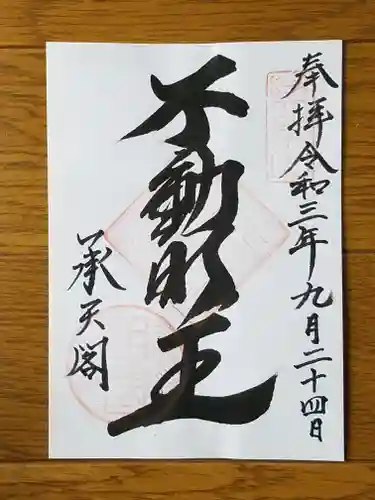 奉拝令和三年九月二十四日
不動明王
承天閣